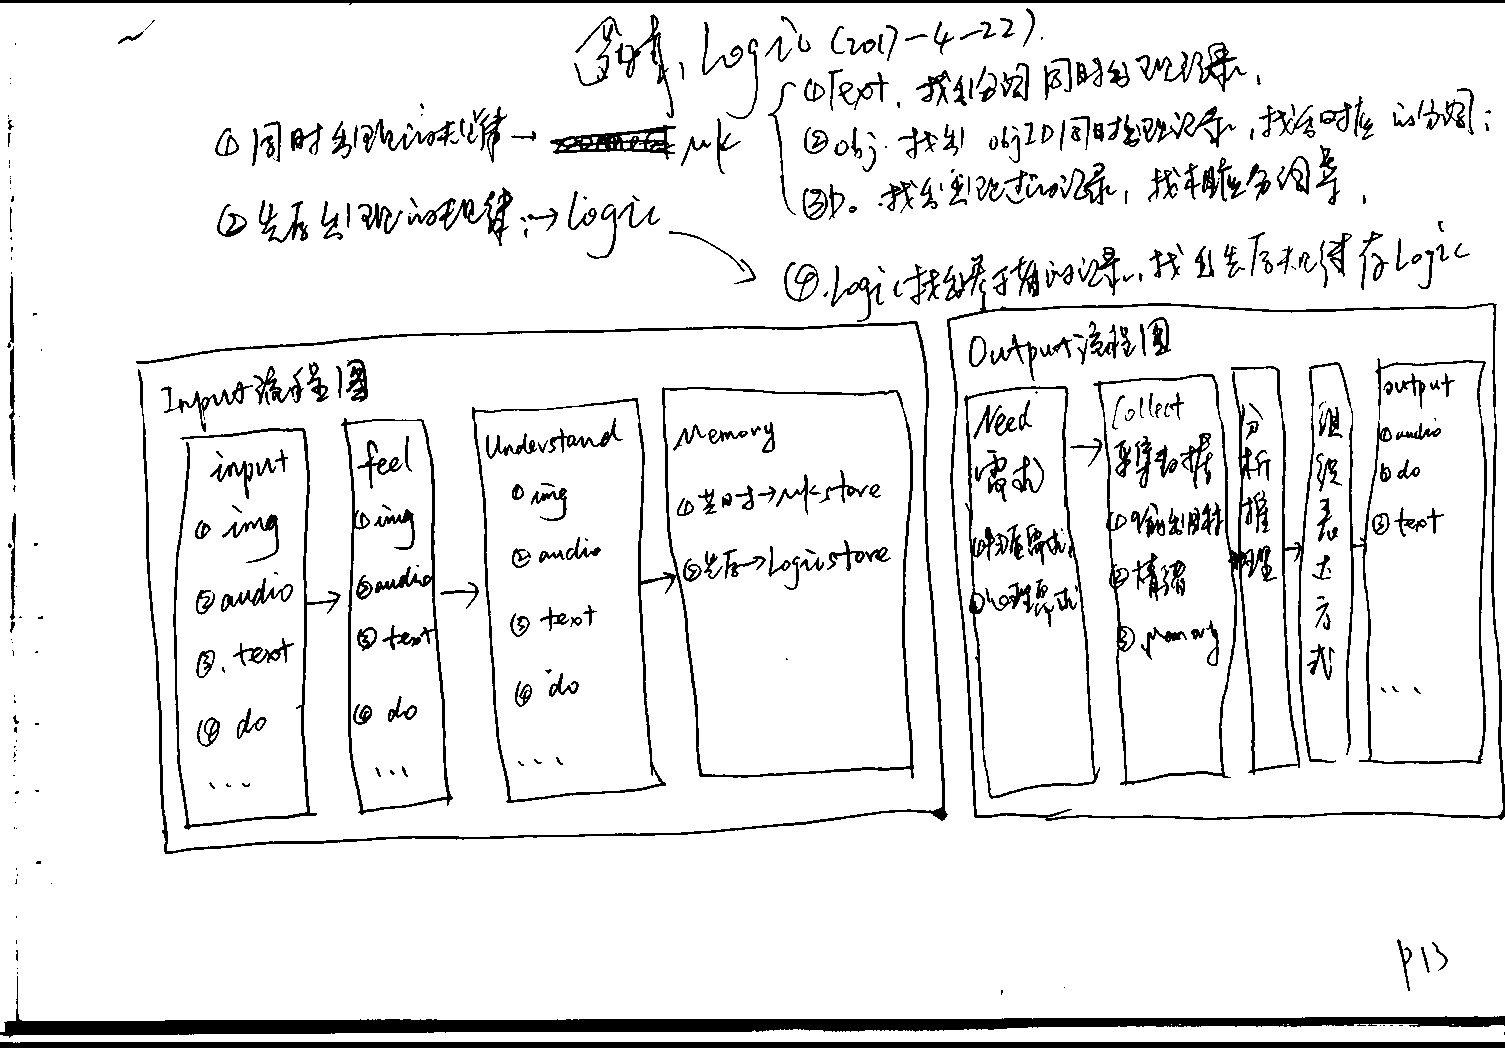 逻辑, Logic (2017-4-22).
①同时出现的规律→ mk
①Text, 找到分词同时出现记录,
②obj. 找出 objID同时出现记录, 找出对应的分词;
③Do. 找出出现过的记录, 找相应分词等,
②先后出现的规律;→Logic
④.Logic找出有的记录, 找出先后规律存Logic
Input流程图
input
①img
②audio
③.text
④do
...
feel
①img
②audio
③text
④do
...
Understand
①img
②audio
③text
④do
...
Memory
①共时→mkstore
②先后→Logicstore
Output流程图
Need
需求
①物质需求
②心理需求
Collect
采集数据
①
②情绪
③Memory
分析推理
组织表达方式
output
①audio
②do
③text
...
P13